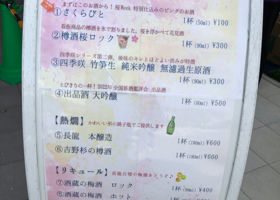 まずはこのお酒から！桜Week 特別仕込みのピンクのお酒
①さくらびと
1杯(50ml) ¥100
②樽酒桜ロック
1杯 ¥300
四季咲シリーズ第二弾
③四季咲 竹笋生 純米吟醸 無濾過生原酒
1杯(60ml) ¥300
④出品酒 大吟醸
1杯(60ml) ¥500
【熱燗】
⑤長龍 本醸造
1杯(180ml) ¥600
⑥吉野杉の樽酒
1杯(180ml) ¥600
【リキュール】
⑦酒蔵の梅酒 ロック
1杯 ¥400
⑧酒蔵の梅酒 ホット